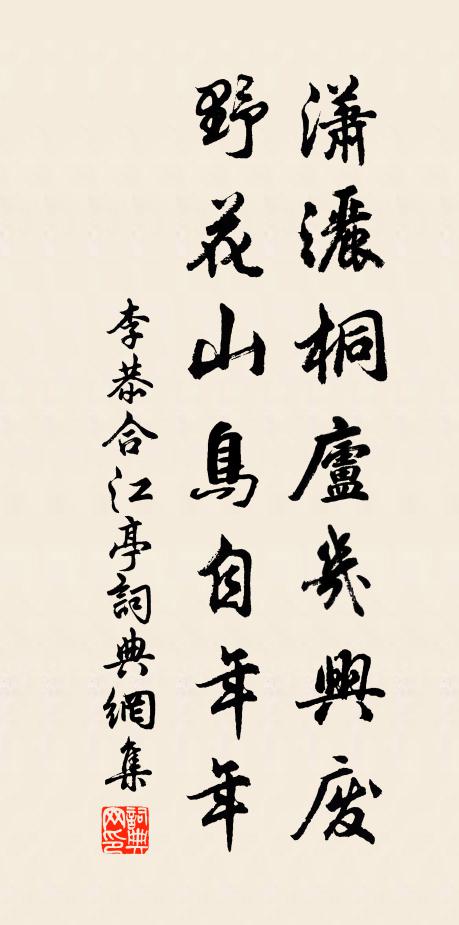 瀟灑桐廬幾興廢
野花山鳥自年年
李恭合江亭詞典網集
詞典网印